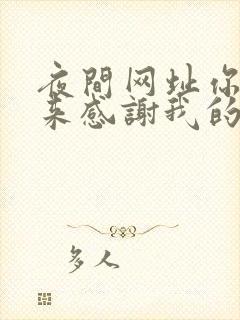 夜間网址你
来感謝我的
多人